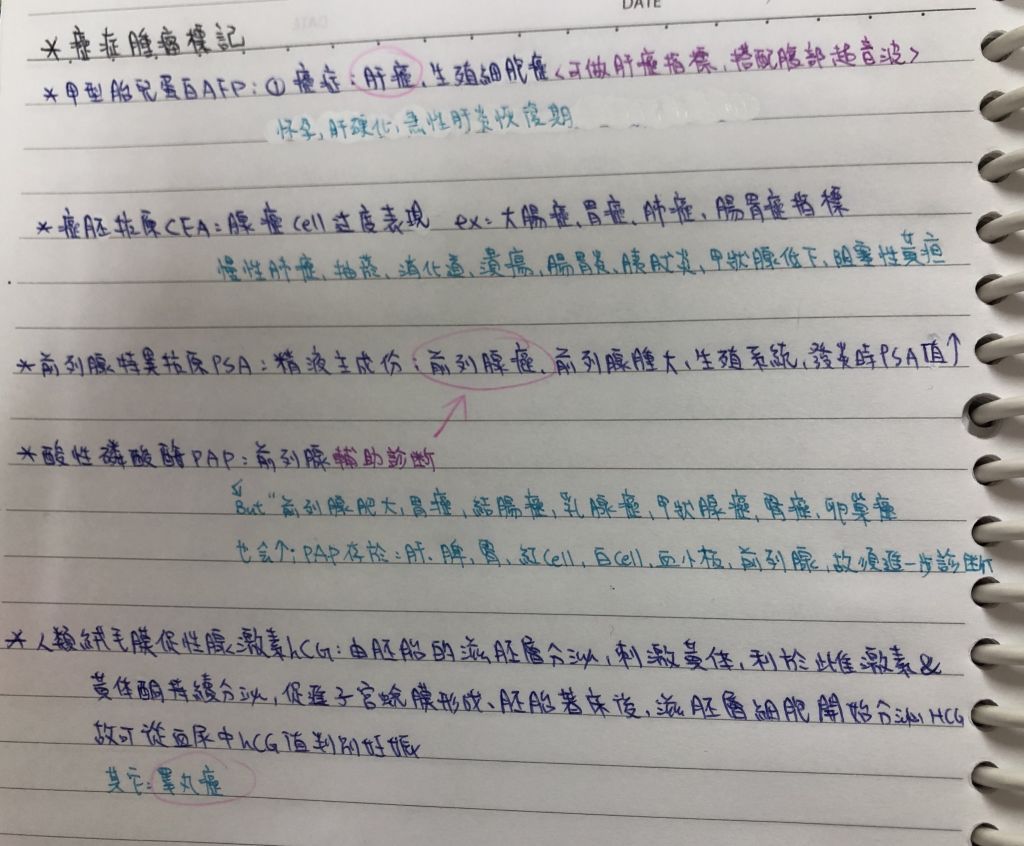 DATE
*癌症腫瘤標記
*甲型胎兒蛋白AFP:①癌症:肝癌,生殖細胞癌<可做肝癌指標,搭配腹部超音波>
怀孕,肝硬化,急性肝炎恢復期
*癌胚抗原CEA:腺癌cell过度表現 ex:大腸癌、胃癌、肺癌、腸胃症指標
慢性肺症、抽菸、消化道、潰瘍、腸胃炎、胰臟炎、甲狀腺低下、阻塞性黃疸
*前列腺特異抗原PSA:精液主成份:前列腺癌,前列腺腫大、生殖系統,發炎時PSA值↑
*酸性磷酸酶PAP:前列腺輔助診斷
But"前列腺肥大,胃癌,結腸癌,乳腺癌,甲狀腺癌,腎癌,卵巢癌
也会↑;PAP存於:肝、脾、腎、紅cell,白cell,血小板,前列腺,故須進一步診斷
*人類絨毛膜促性腺激素hCG:由胚胎的滋胚層分泌,刺激黃体,利於雌激素&
黃体酮持續分泌,促進子宮蛻膜形成、胚胎著床後,滋胚層細胞開始分泌HCG
故可從血尿中hCG值判別妊娠
其它:睪丸癌